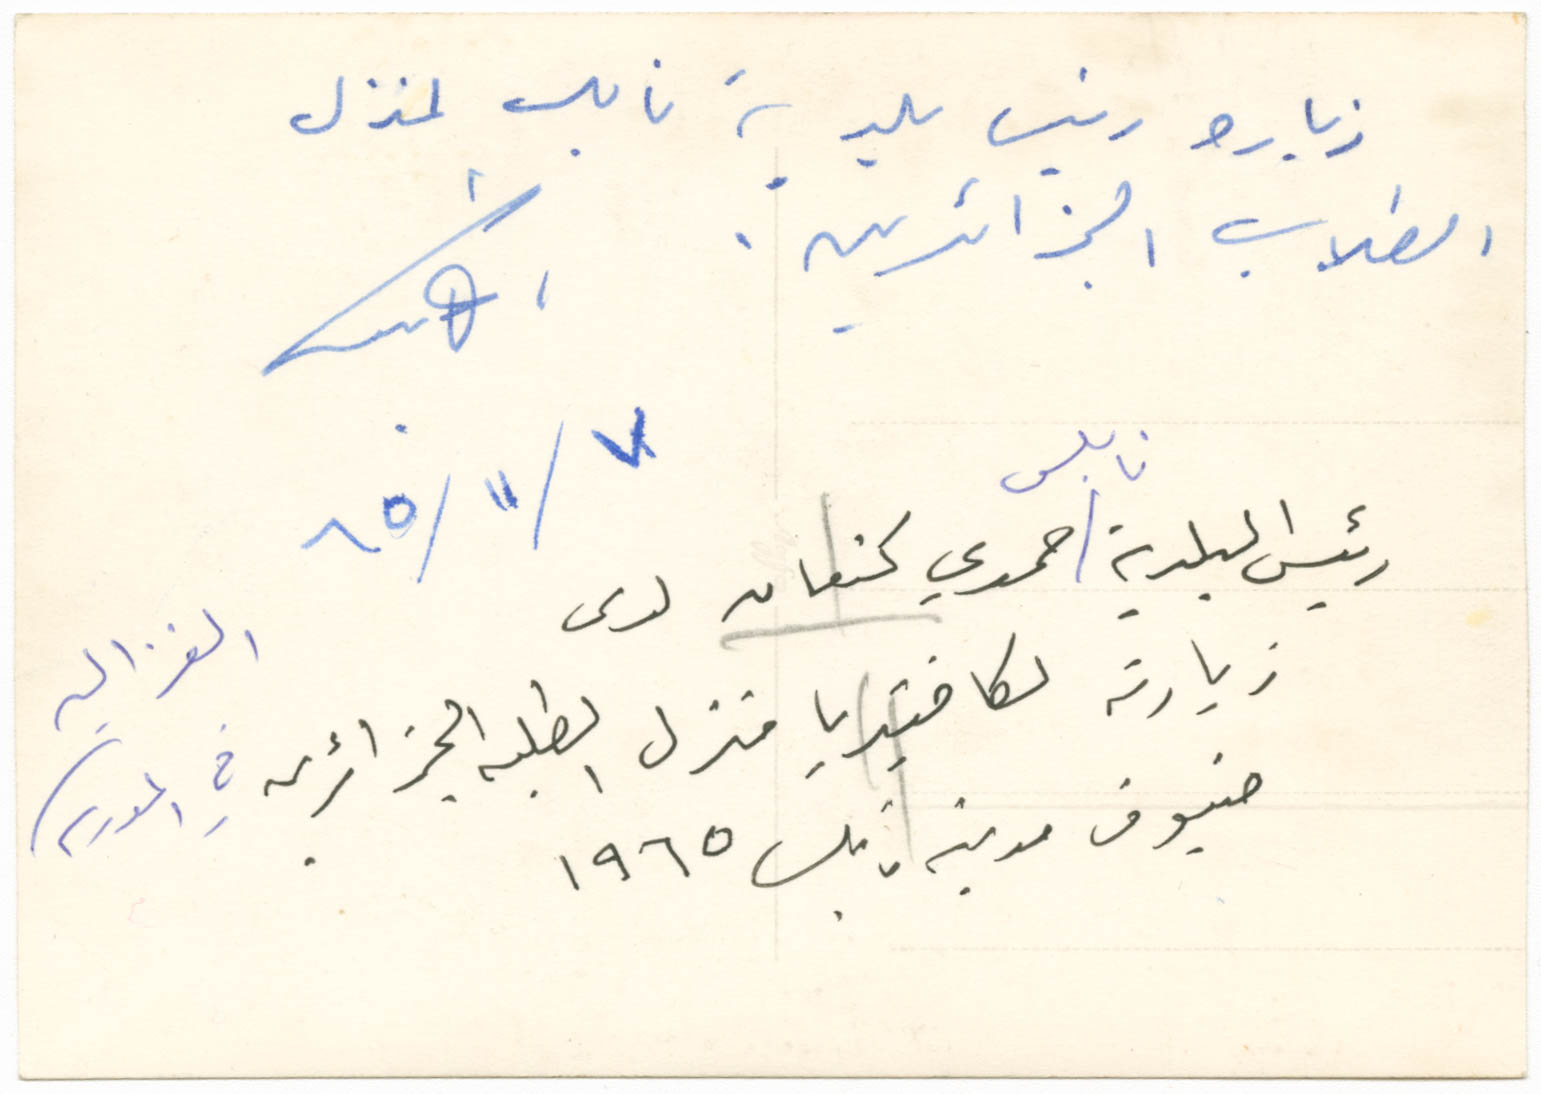 زيارة رئيس بلدية نابلس لمنزل
الطلاب الجزائريين.
٦٥/١١/٧
نابلس
رئيس البلدية / حمدي كنعان لدى
زيارته لكافتيريا منزل الطلبه الجزائرين
ضيوف مدينة نابلس ١٩٦٥
الغزاليه
في